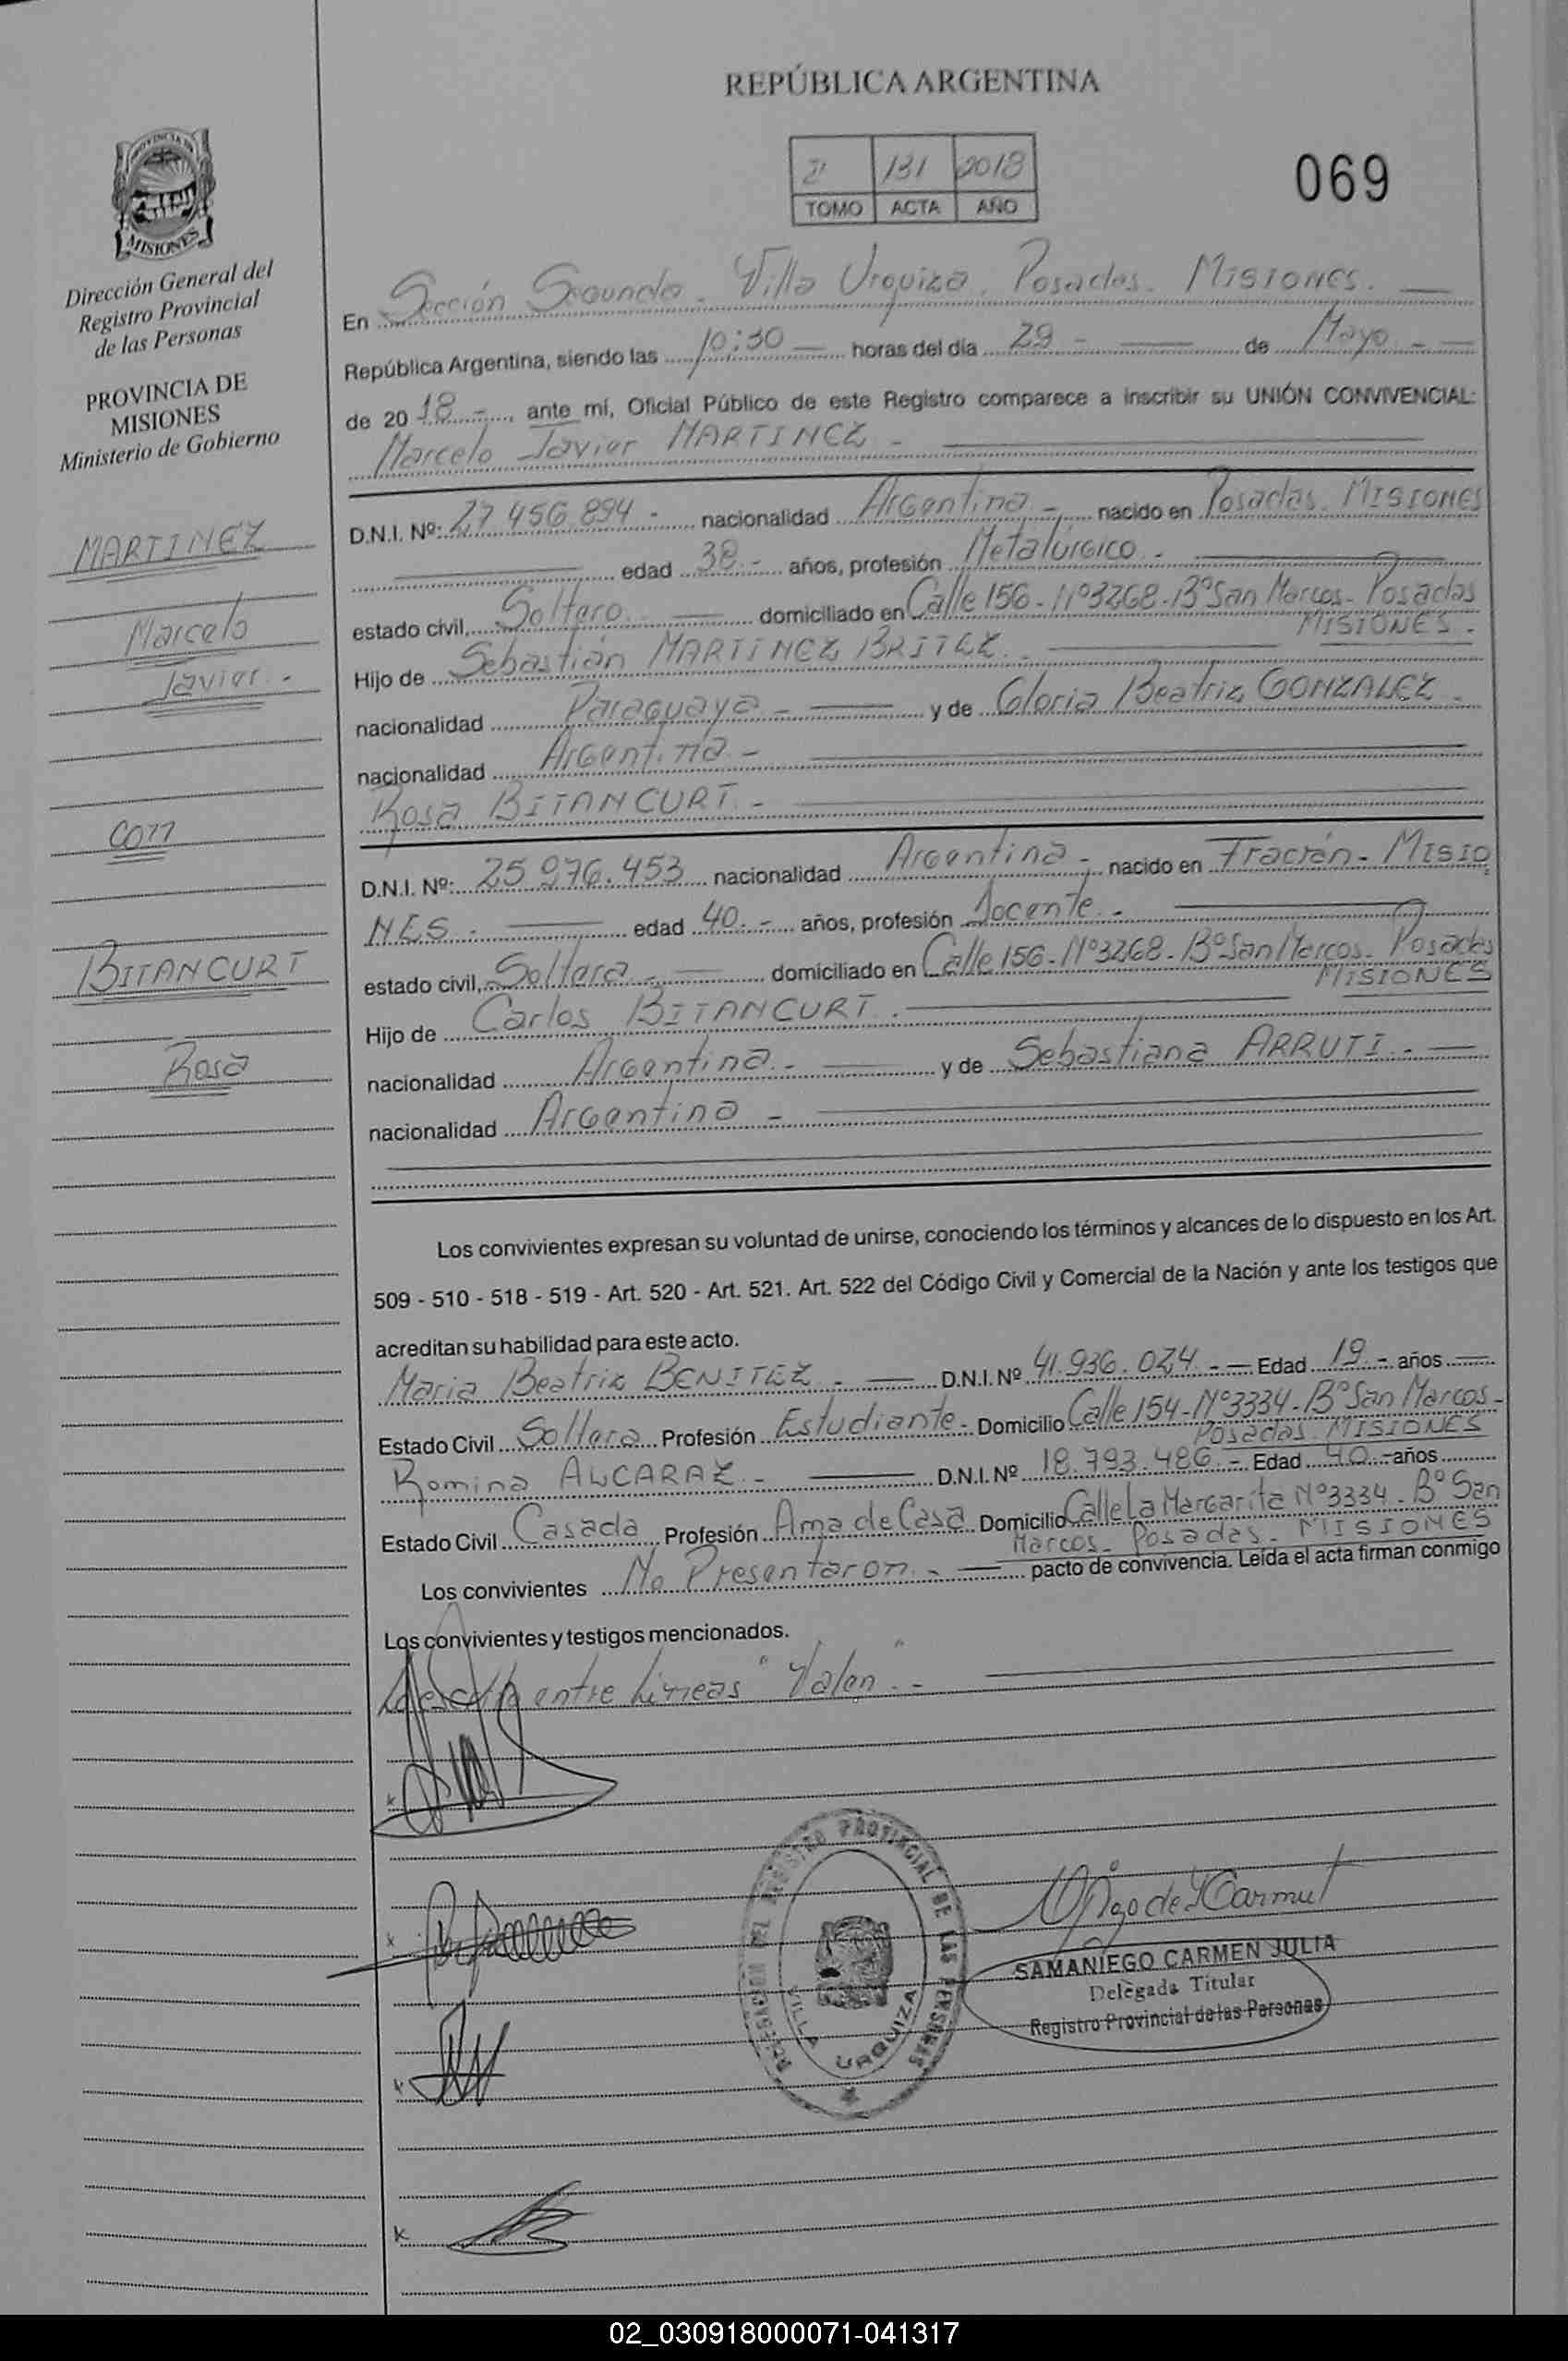 REPÚBLICA ARGENTINA
2º 131 2018
TOMO ACTA AÑO
069
PROVINCIA DE
MISIONES
Dirección General del
Registro Provincial
de las Personas
PROVINCIA DE
MISIONES
Ministerio de Gobierno
MARTINEZ
Marcelo
Javier.-
con
BITANCURT
Rosa
En Sección Segunda. Villa Urquiza. Posadas. MISIONES.
República Argentina, siendo las 10:30 horas del día 29 - de Mayo -
de 20 18 -, ante mí, Oficial Público de este Registro comparece a inscribir su UNIÓN CONVIVENCIAL:
Marcelo Javier MARTINEZ -
D.N.I. Nº: 27.456.894 - nacionalidad Argentina - nacido en Posadas. MISIONES
edad 38.- años, profesión Metalúrgico -
estado civil, Soltero. domiciliado en Calle 156 - Nº3268 - Bº San Marcos - Posadas
MISIONES -
Hijo de Sebastián MARTINEZ BRITEZ. -
nacionalidad Paraguaya - y de Gloria Beatriz GONZALEZ -
nacionalidad Argentina -
Rosa BITANCURT -
D.N.I. Nº: 25.976.453 nacionalidad Argentina - nacido en Fracrán - MISIO
NES - edad 40.- años, profesión Docente. -
estado civil, Soltera - domiciliado en Calle 156 - Nº3268 - Bº San Marcos - Posadas
MISIONES
Hijo de Carlos BITANCURT.
nacionalidad Argentina - y de Sebastiana ARRUTI. -
nacionalidad Argentina -
Los convivientes expresan su voluntad de unirse, conociendo los términos y alcances de lo dispuesto en los Art.
509 - 510 - 518 - 519 - Art. 520 - Art. 521. Art. 522 del Código Civil y Comercial de la Nación y ante los testigos que
acreditan su habilidad para este acto.
Maria Beatriz BENITEZ - D.N.I. Nº 41.936.024 - Edad 19 - años
Estado Civil Soltera Profesión Estudiante - Domicilio Calle 154 - Nº3334 - Bº San Marcos -
Posadas MISIONES
Romina ALCARAZ - D.N.I. Nº 18.793.486 - Edad 40 - años
Estado Civil Casada Profesión Ama de Casa Domicilio Calle La Margarita Nº3334 - Bº San
Marcos - Posadas - MISIONES
Los convivientes No Presentaron - pacto de convivencia. Leída el acta firman conmigo
Los convivientes y testigos mencionados.
entre Líneas " Valen".-
REGISTRO PROVINCIAL DE LAS PERSONAS
VILLA URQUIZA
SAMANIEGO CARMEN JULIA
Delegada Titular
Registro Provincial de las Personas
02_030918000071-041317